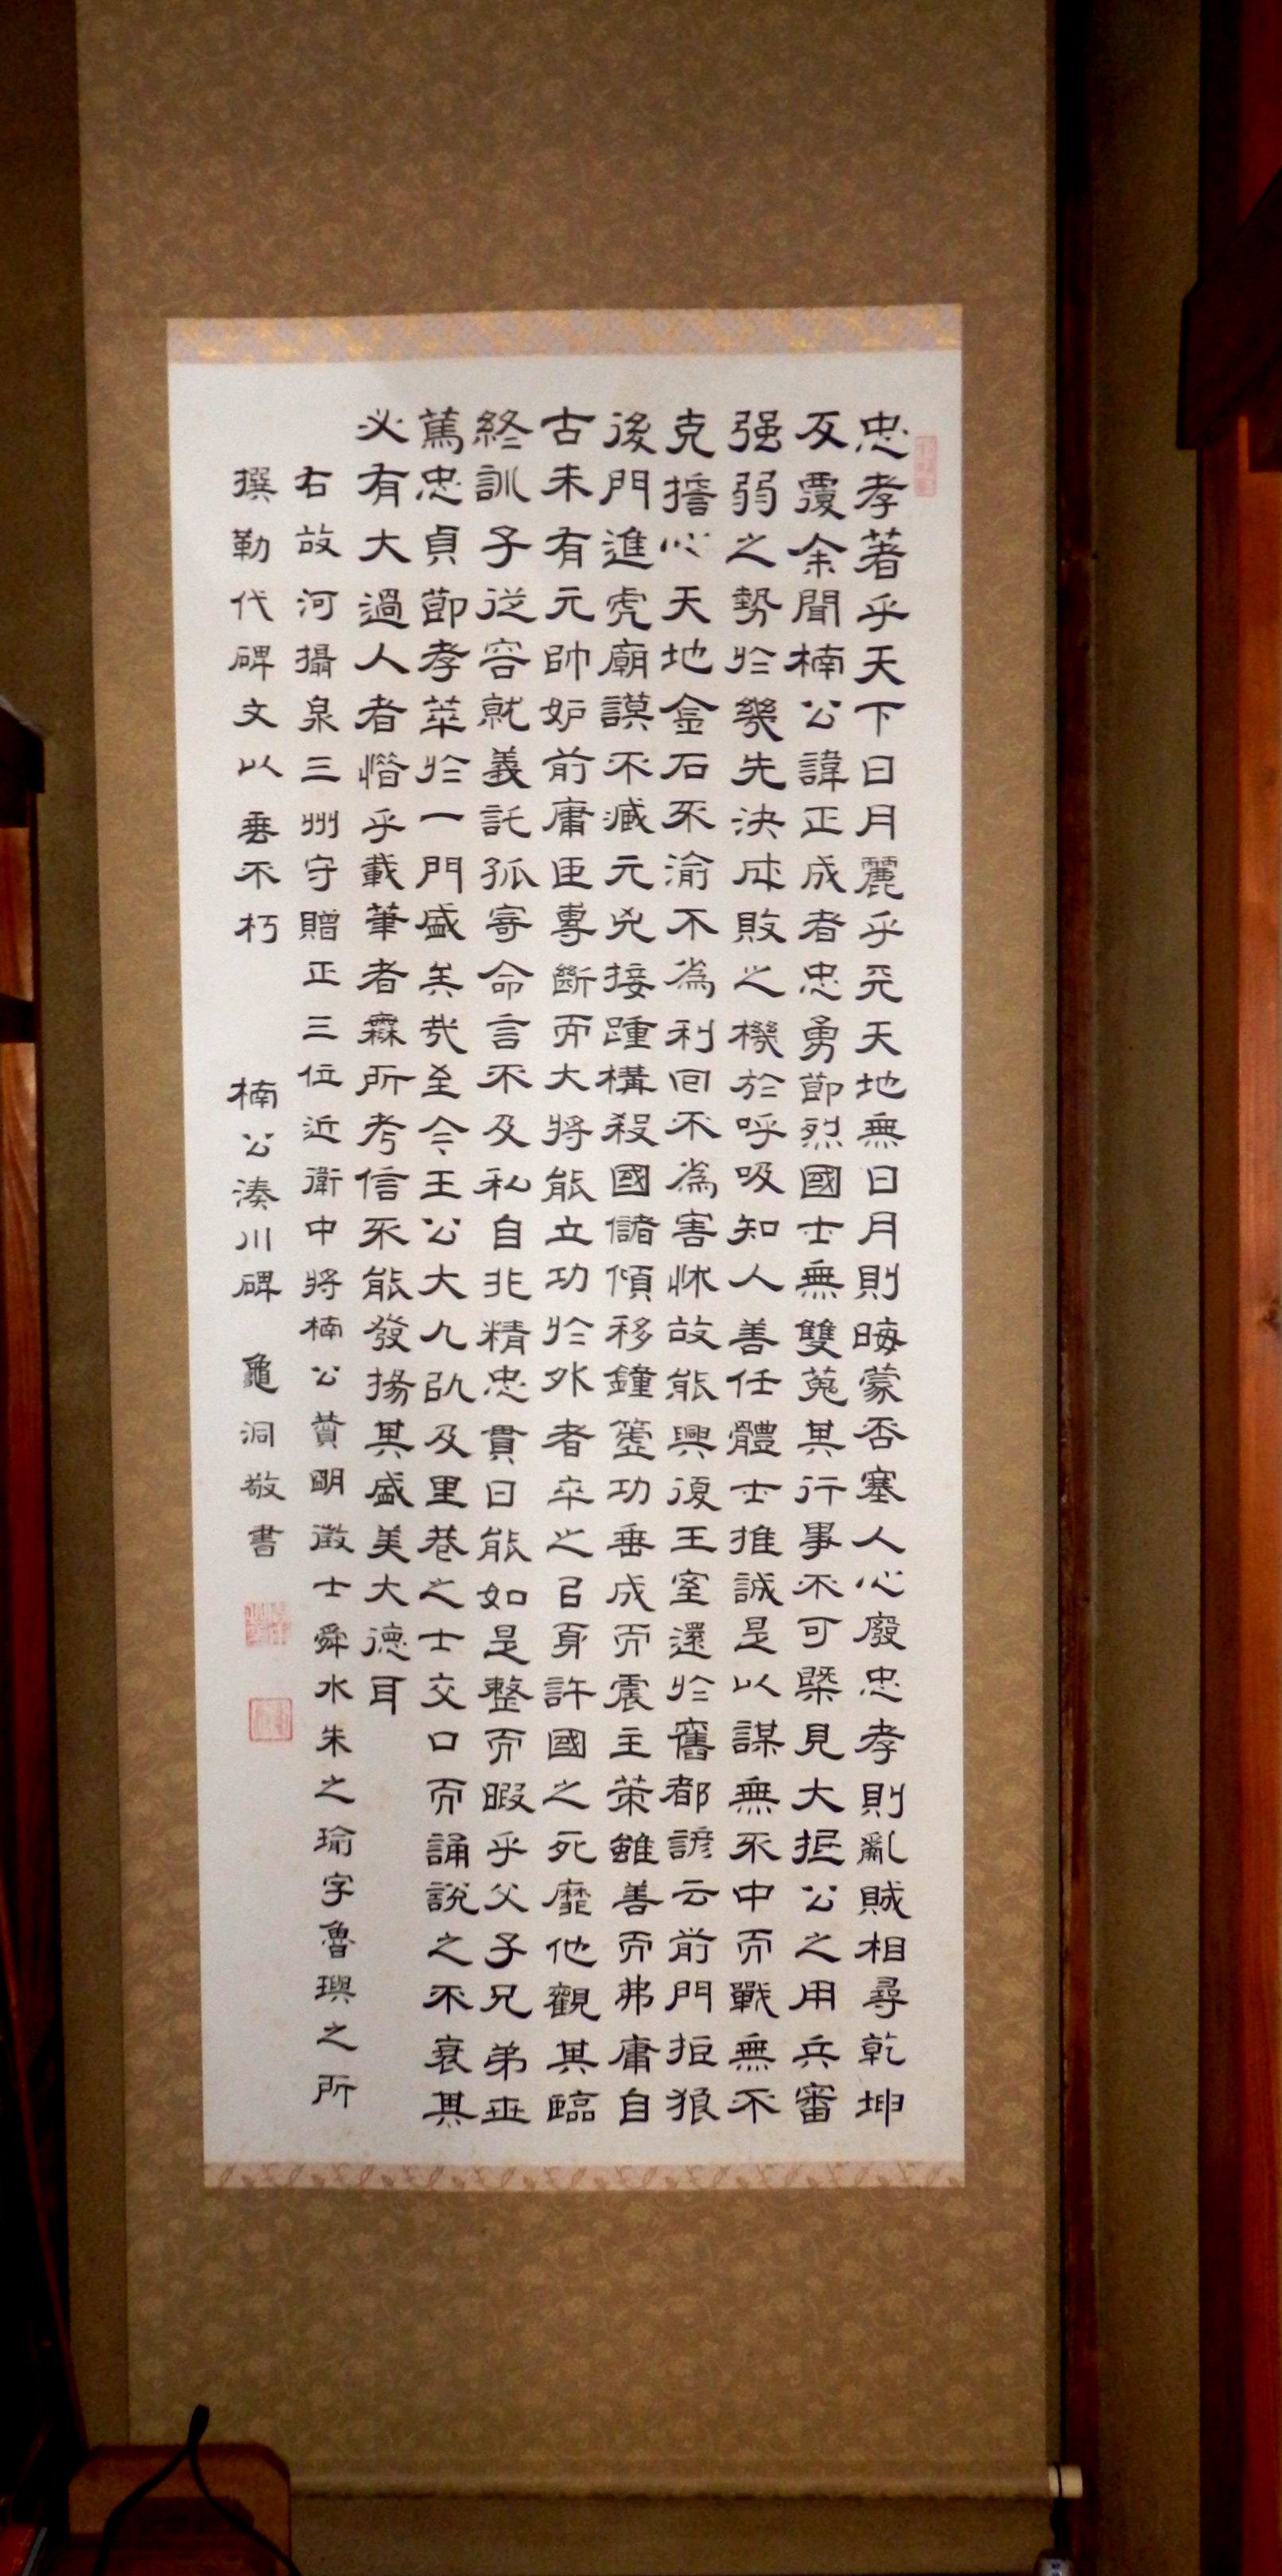 忠孝著乎天下日月麗乎天天地無日月則晦蒙否塞人心廢忠孝則亂賊相尋乾坤
反覆余聞楠公諱正成者忠勇節烈國士無雙蒐其行事不可槩見大抵公之用兵審
强弱之勢於幾先決成敗之機於呼吸知人善任體士推誠是以謀無不中而戰無不
克誓心天地金石不渝不爲利回不爲害怵故能興復王室還於舊都諺云前門拒狼
後門進虎廟謨不臧元兇接踵構殺國儲傾移鐘簴功垂成而震主策雖善而弗庸自
古未有元帥妒前庸臣專斷而大將能立功於外者卒之以身許國之死靡佗觀其臨
終訓子從容就義託孤寄命言不及私自非精忠貫日能如是整而暇乎父子兄弟世
篤忠貞節孝萃於一門盛矣哉至今王公大人以及里巷之士交口而誦說之不衰其
必有大過人者惜乎載筆者無所考信不能發揚其盛美大德耳
右故河攝泉三州守贈正三位近衛中將楠公贊明徵士舜水朱之瑜字魯璵之所
撰勒代碑文以垂不朽 楠公湊川碑 龜洞敬書